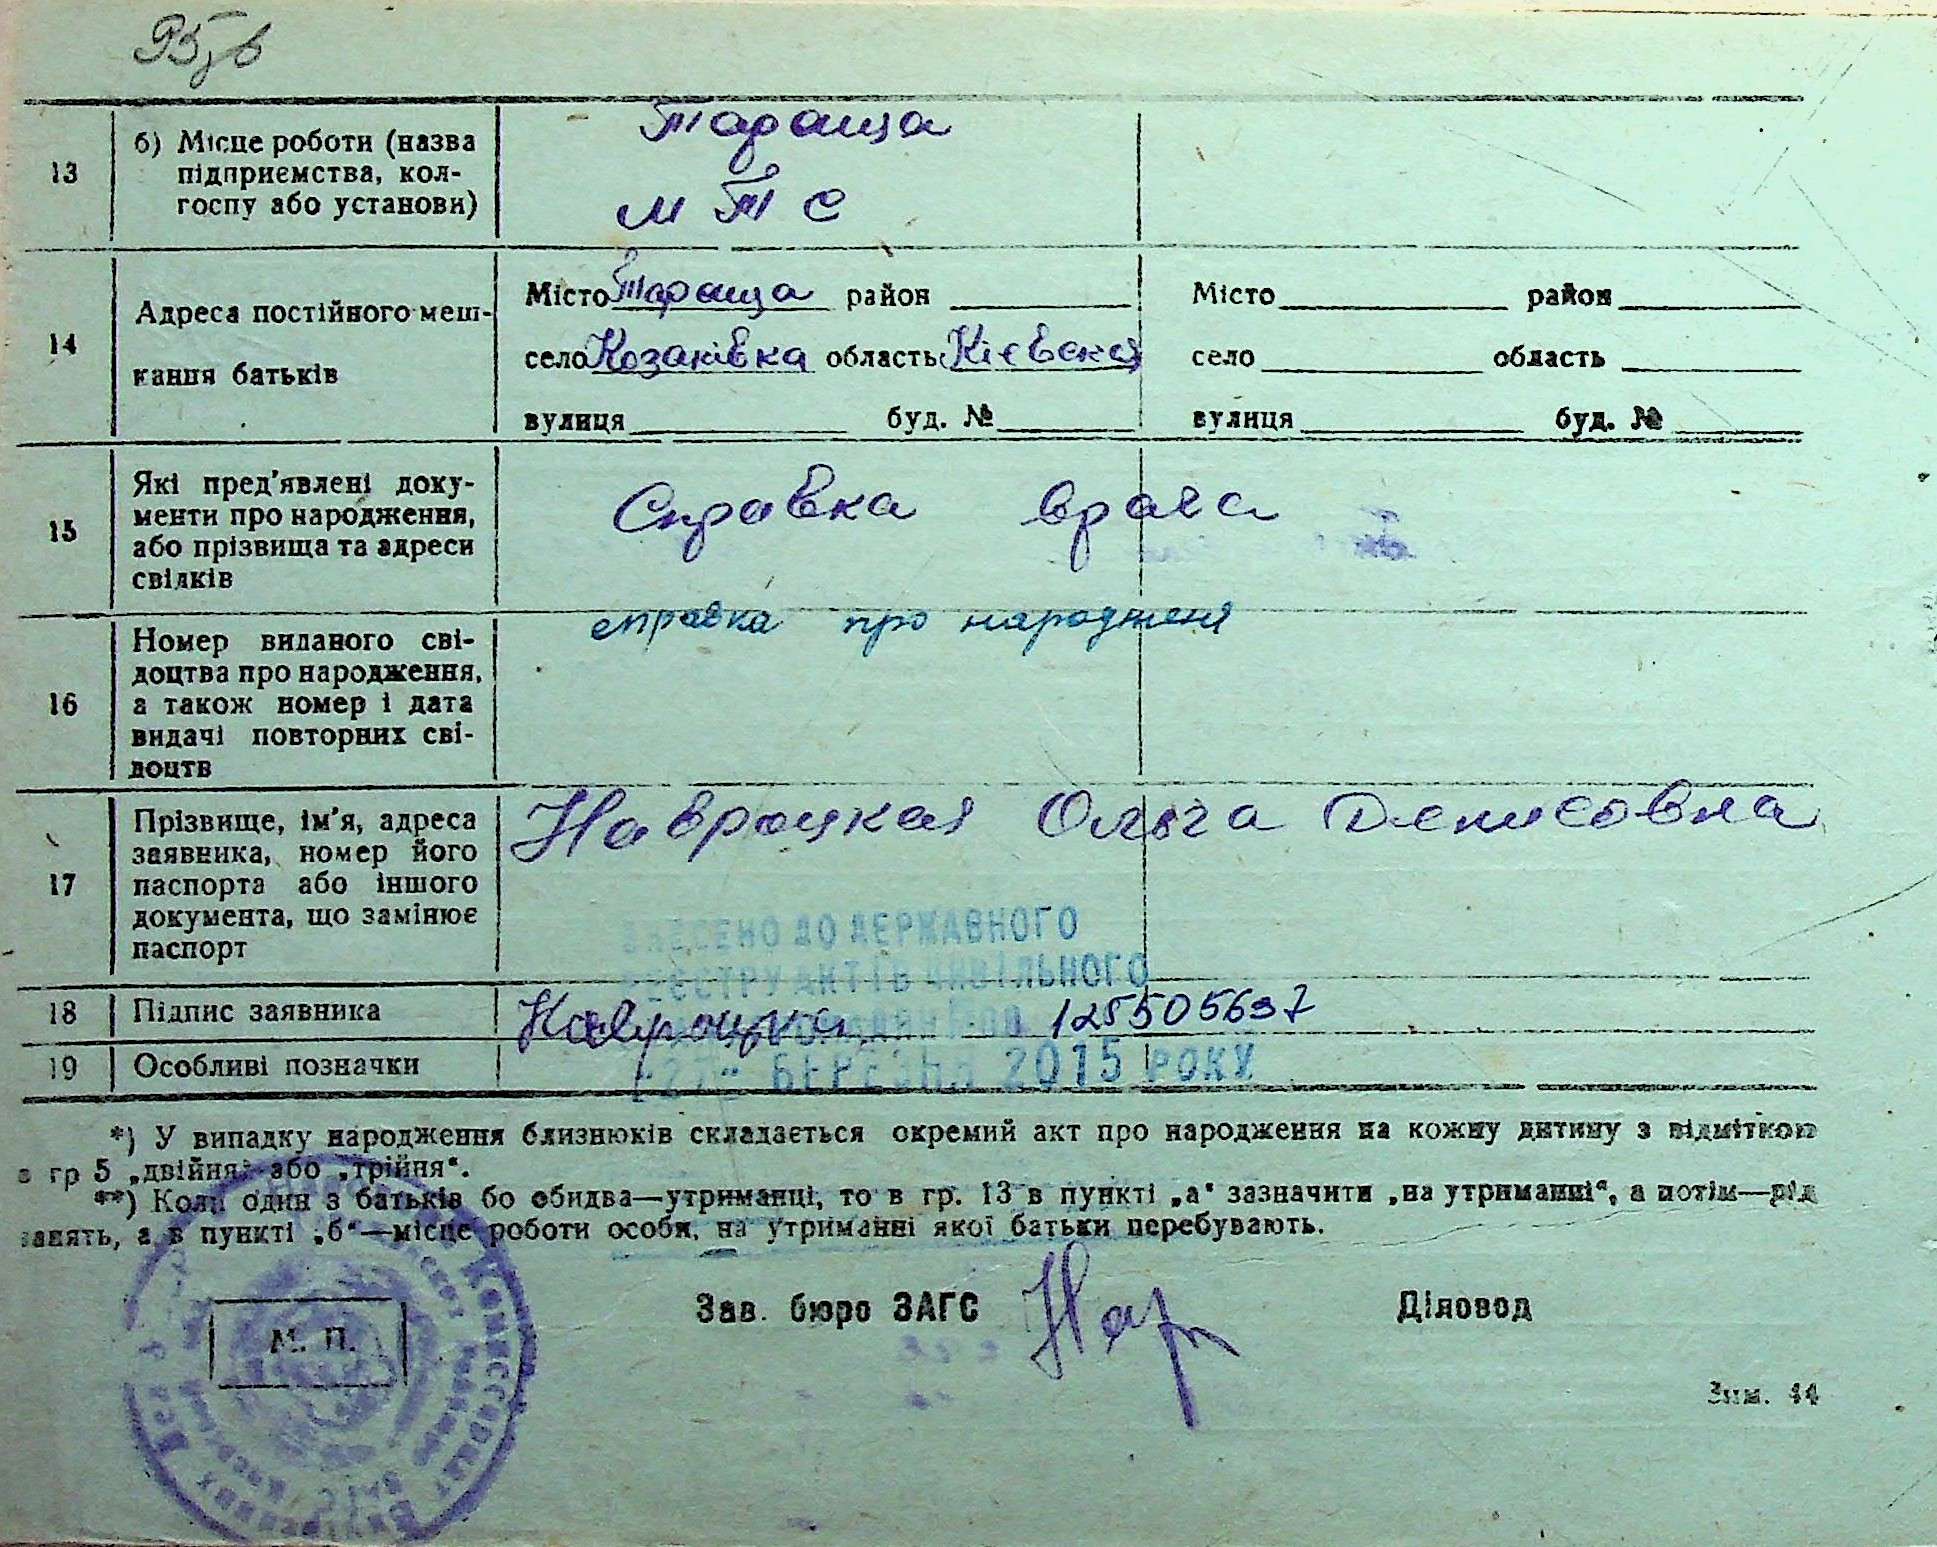 95,в
13
б) Місце роботи (назва
підприємства, кол-
госпу або установи)
Тараща
МТС
14
Адреса постійного меш-
кання батьків
Місто Тараща район
село Козаківка область Кієвская
вулиця буд. №
Місто район
село область
вулиця буд. №
15
Які пред'явлені доку-
менти про народження,
або прізвища та адреси
свідків
Справка врача
16
Номер виданого сві-
доцтва про народження,
а також номер і дата
видачі повторних сві-
доцтв
справка про народженя
17
Прізвище, ім'я, адреса
заявника, номер його
паспорта або іншого
документа, що замінює
паспорт
Навроцкая Ольга Денисовна
ВНЕСЕНО ДО ДЕРЖАВНОГО
РЕЄСТРУ АКТІВ ЦИВІЛЬНОГО
18
Підпис заявника
Навроцка
125505697
19
Особливі позначки
"27" БЕРЕЗНЯ 2015 РОКУ
*) У випадку народження близнюків складається окремий акт про народження на кожну дитину з відміткою
в гр 5 „двійня" або „трійня".
**) Коли один з батьків бо обидва—утриманці, то в гр. 13 в пункті „а" зазначити „на утриманні", а потім—рід
занять, а в пункті „б"—місце роботи особи, на утриманні якої батьки перебувають.
М. П.
Зав. бюро ЗАГС
Діловод
Зам. 44